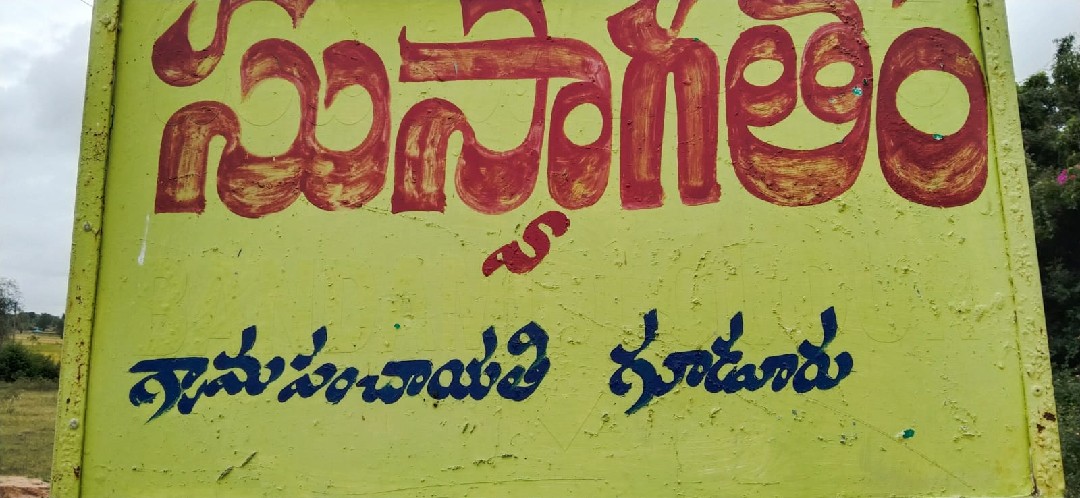 సుస్వాగతం
గ్రామ పంచాయతి గూడూరు